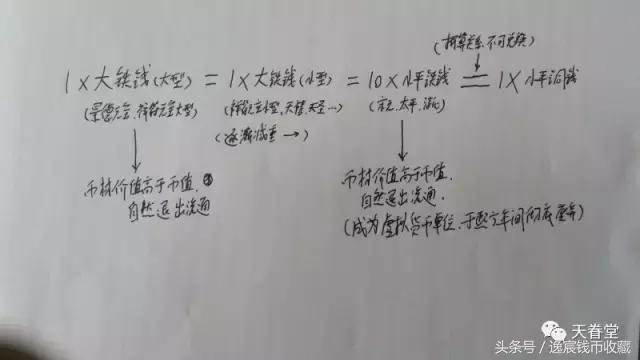 (折算关系,不可兑换)
1×大铁钱(大型) = 1×大铁钱(小型) = 10×小平铁钱 = 1×小平铜钱
(景德元宝、祥符元宝大型) (祥符元宝小型、天禧、天圣…) (宋元、太平、淳化)
(逐渐减重→)
币材价值高于币值,
自然退出流通
币材价值高于币值,
自然退出流通.
(成为虚拟货币单位,于熙宁年间彻底废弃)
天眷堂
头条号/逸宸钱币收藏